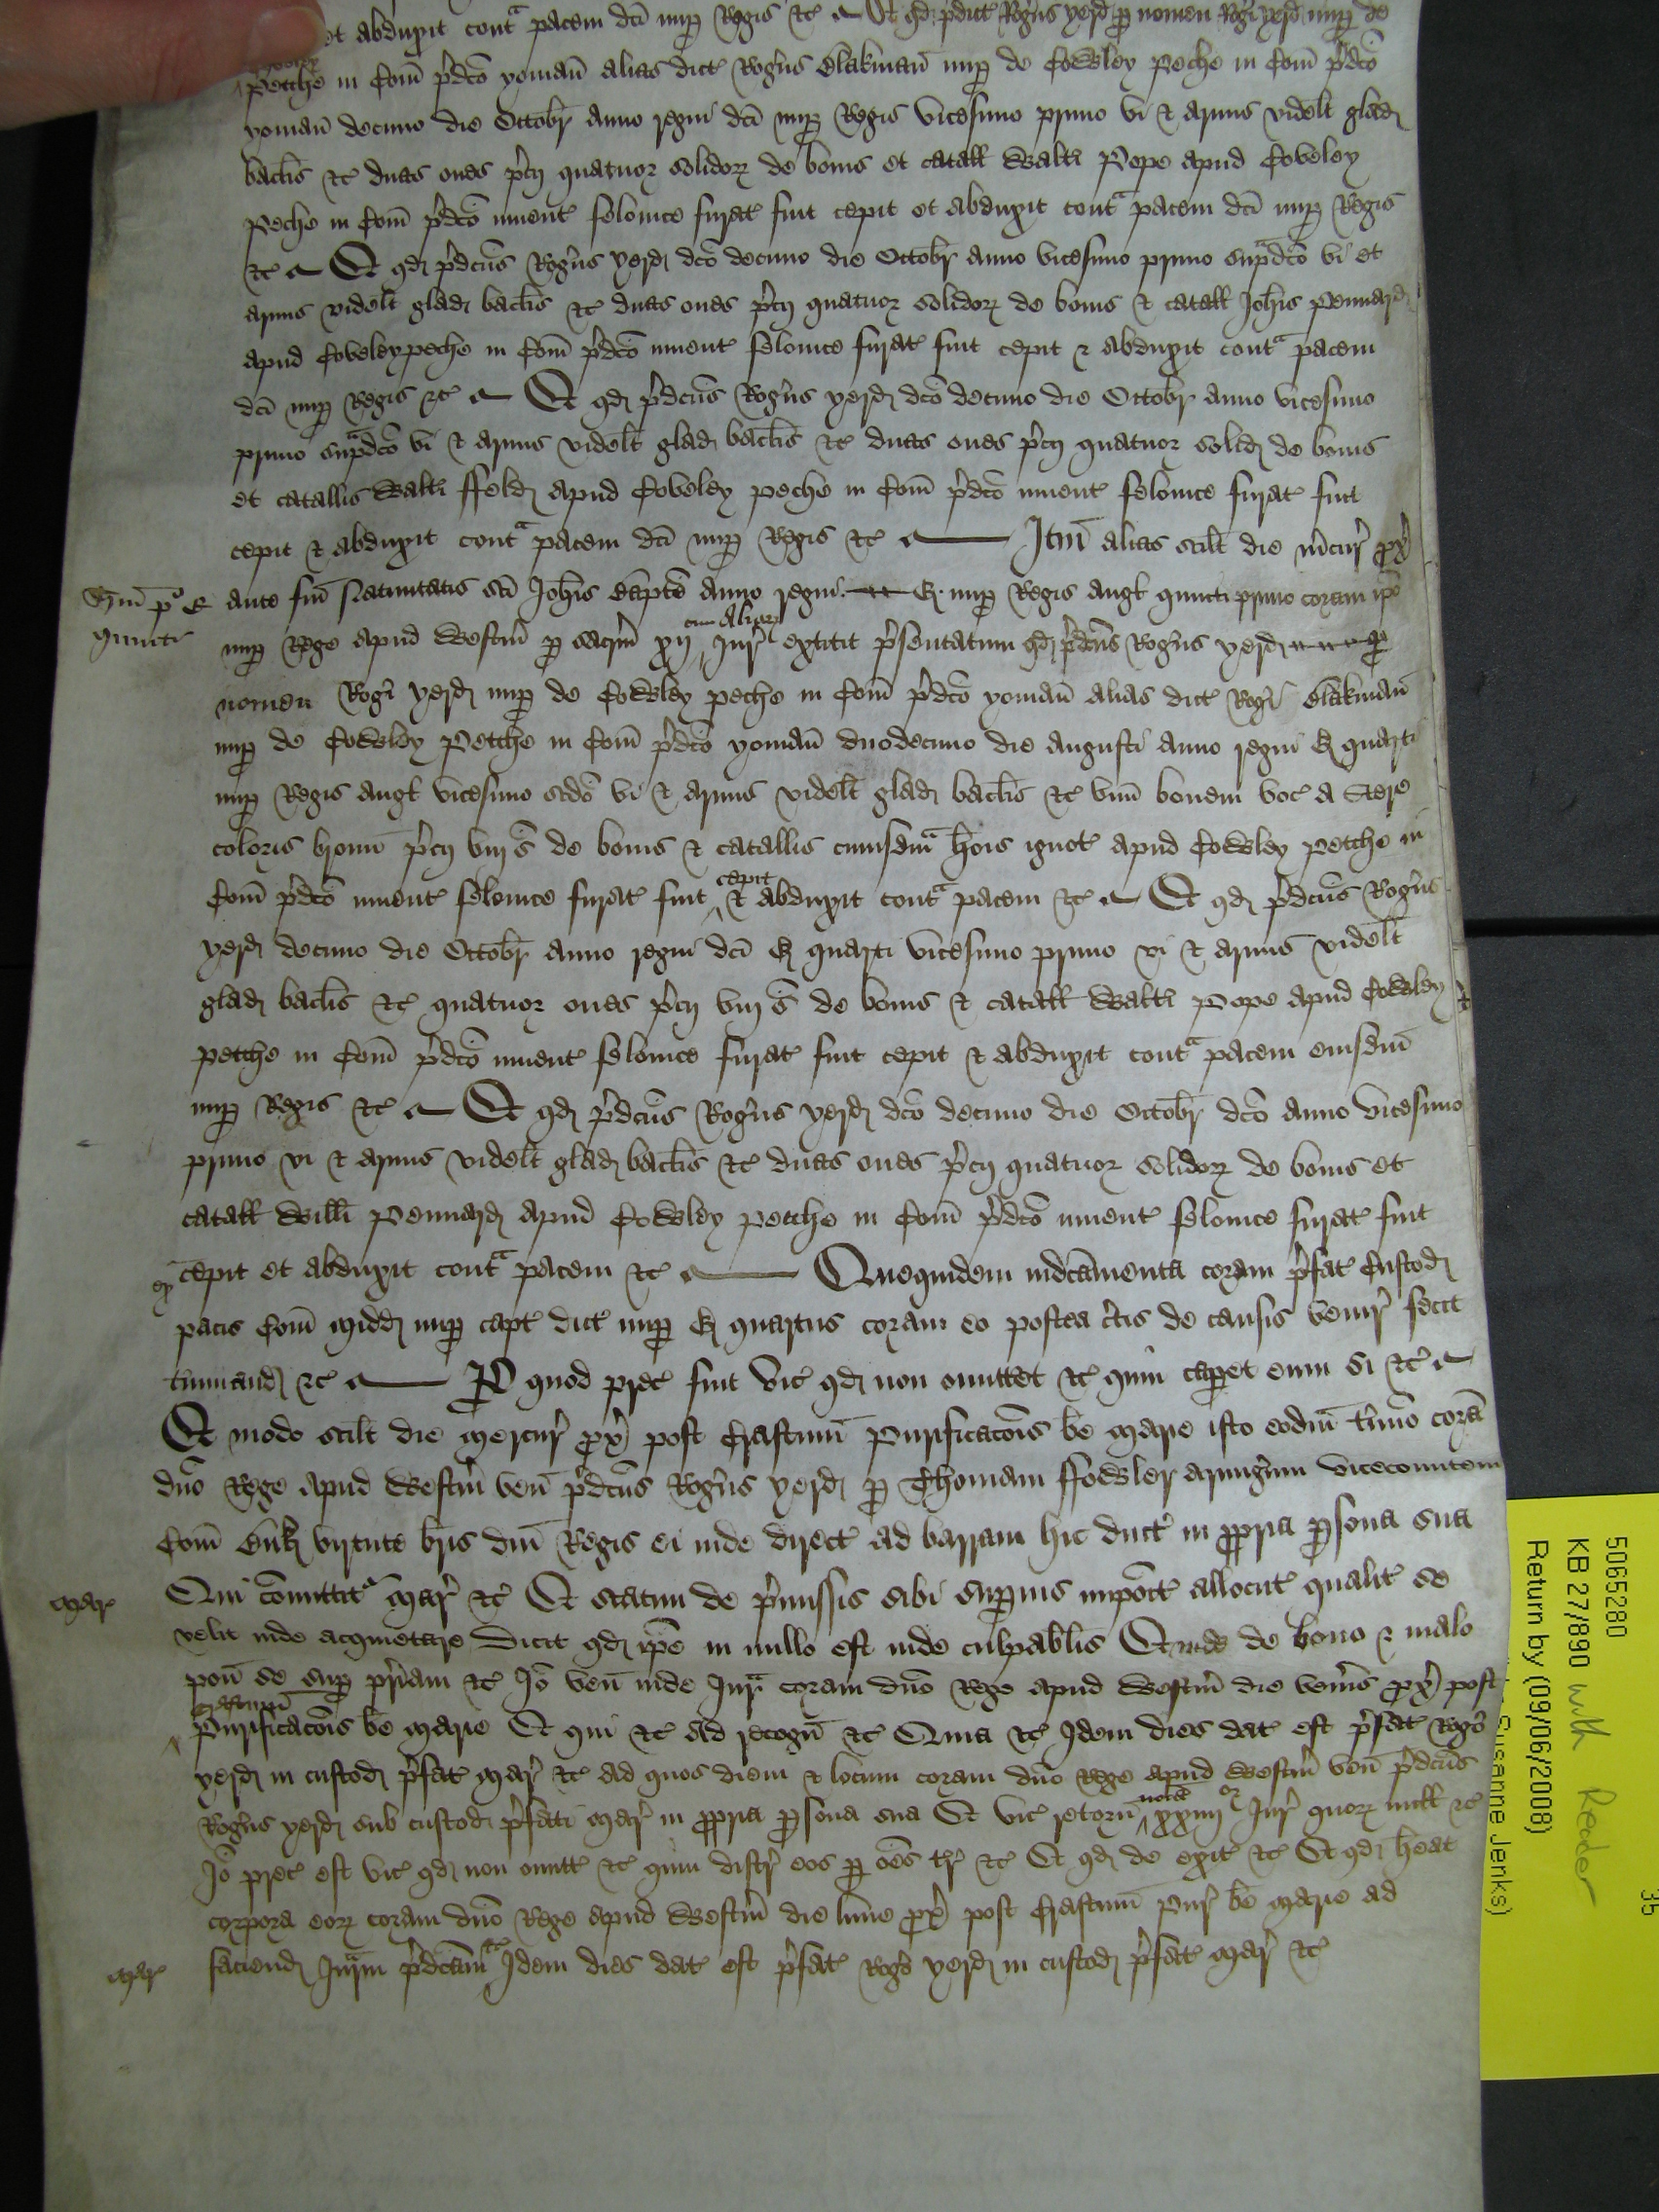 et abduxit cont^a pacem dc̄i nup Regis &c Et qd p'dict Rog'us yerd p nomen Rog'i yerd nup de
petche in Com̄ p'dc̄o yoman̄ alias dict Rog'us Blakman̄ nup de Cowley Peche in Com̄ p'dc̄o
yoman̄ decimo die Octobr̄ Anno regni dc̄i nup Regis vicesimo primo vi & armis videlt glad
bacłis &c duas oues p'cij quatuor solidoȝ de bonis et catall Walti Pope apud Coveley
Peche in Com̄ p'dc̄o inuent felonice furat fuit cepit et abduxit cont^a pacem dc̄i nup Regis
&c Et qd p'dcūs Rog'us yerd dc̄o decimo die Octobr̄ anno vicesimo primo sup^adc̄o vi et
armis videlt glad bacłis &c duas oues p'cij quatuor solidoȝ de bonis & catall Joh̄is Pennard
apud Coveleypeche in Com̄ p'dc̄o inuent felonice furat fuit cepit & abduxit cont^a pacem
dc̄i nup Regis &c Et qd p'dcūs Rog'us yerd dc̄o decimo die Octobr̄ anno vicesimo
primo sup^adc̄o vi & armis videlt glad bacłis &c duas oues p'cij quatuor solid de bonis
et catallis Walti ffeld apud Coveley peche in Com̄ p'dc̄o inuent felonice furat fuit
cepit & abduxit cont^a pacem dc̄i nup Regis &c Itm̄ alias scilt die m̄cur' px'
ante fm̄ Natiuitatis sc̄i Joh̄is Bapte Anno regni R. nup Regis Angł quinti primo coram ip̄o
quinti
nup Rege apud Westm̄ p sacrm̄ xij cum Alior Jur' extitit p'sentatum qd p'dcūs Rog'us yerd p
nomen Rog'i yerd nup de Cowley peche in Com̄ p'dc̄o yoman̄ alias dict Rog'i Blakman̄
nup de Cowley Petche in Com̄ p'dc̄o yoman̄ duodecimo die Augusti anno regni R quarti
nup Regis Angł vicesimo scdo vi & armis videlt glad bacłis &c vnū bouem voc A Stere
coloris broun̄ p'cij viij s̄ de bonis & catallis cuiusdm̄ ho̅is ignot apud Cowley Petche in
Com̄ p'dc̄o inuent felonice furat fuit cepit & abduxit cont^a pacem &c Et qd p'dcūs Rog'us
yerd decimo die Octobr̄ anno regni dc̄i R quarti vicesimo primo vi & armis videlt
glad bacłis &c quatuor oues p'cij viij s̄ de bonis & catall Walti Pope apud Cowley
petche in Com̄ p'dc̄o inuent felonice furat fuit cepit & abduxit cont^a pacem euisdm̄
nup Regis &c Et qd p'dcūs Rog'us yerd dc̄o decimo die Octobr̄ dc̄o anno vicesimo
primo vi & armis videlt glad bacłis &c duas oues p'cij quatuor solidoȝ de bonis et
catall Willi Pennard apud Cowley petche in Com̄ p'dc̄o inuent felonice furat fuit
cepit et abduxit cont^a pacem &c Quequidem indcāmenta coram p'fat Custod
pacis Com̄ Midd nup capt dict nup R quartus coram eo postea c'tis de causis venir' fecit
t'minand &c P quod prec fuit vic qd non omittet &c quin caperet eum si &c
Et modo scilt die Mercur' px' post Crastinū Purificacois be Marie isto eodm̄ t'mio coram
dn̄o Rege apud Westm̄ ven̄ p'dcūs Rog'us yerd p Thomam ffowler armig'um vicecomitem
Com̄ Buk virtute br̄is dn̄i Regis ei inde direct ad barram hic duct' in ppria psona sua
Mar'
Qui com̄ittit^r Mar' &c Et statim de p'missis sibi superius impoit allocut qualit se
velit inde acquietare Dicit qd ip̄e in nullo est inde culpabilis Et inde de bono & malo
pon̄ se sup pr̄iam &c Jo ven̄ inde Jur^a coram dn̄o Rege apud Westm̄ die ven'is px' post
Crastinū
Purificacois be Marie Et qui &c Ad recogn̄ &c Quia &c Idem dies dat est p'fat Rog'o
yerd in custod p'fat Mar' &c Ad quos diem & locum coram dn̄o Rege apud Westm̄ ven̄ p'dcūs
Rog'us yerd sub custod p'fati Mar' in ppria psona sua Et vic retorn̄ xxiiij or Jur' quoȝ null &c
Jo prec est vic qd non omitt &c quin distr' eos p om̄es tr' &c Et qd de exit &c Et qd heat
corpora eoȝ coram dn̄o Rege apud Westm̄ die lune px' post Crastinū Pur' be Marie ad
Mar'
faciend Jur^am p'dcām &c Idem dies dat est p'fat Rog'o yerd in custod p'fat Mar' &c
5065280
KB 27/890
Return by (09/06/2008)
Susanne Jenks)
with Reader
35